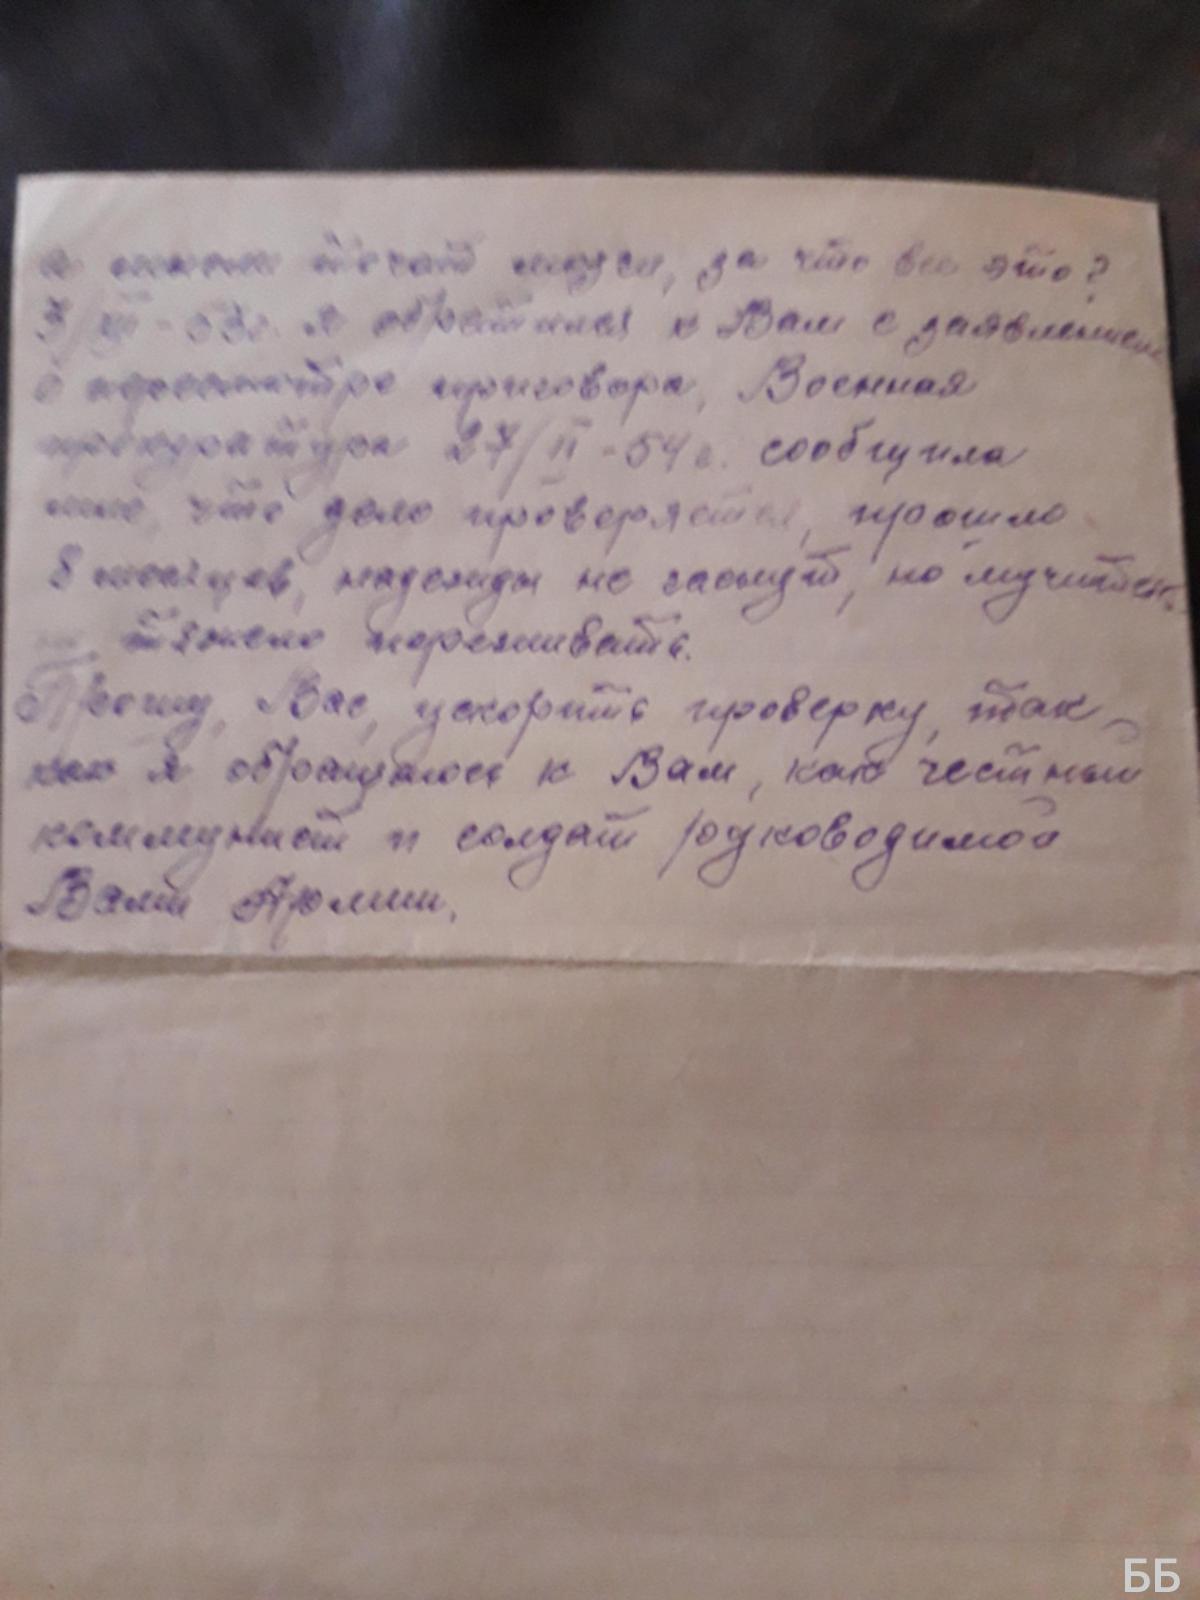 точат мозги, за что все это?
я обратился к Вам с заявлением
о пересмотре приговора, Военная
прокуратура 27/II-54г. сообщила
мне, что дело проверяется, прошло
8 месяцев, надежды не гаснут, но мучительно
тяжело переживать.
Прошу, Вас, ускорить проверку, так
как я обращаюсь к Вам, как честный
коммунист и солдат руководимой
Вами Армии.
ББ